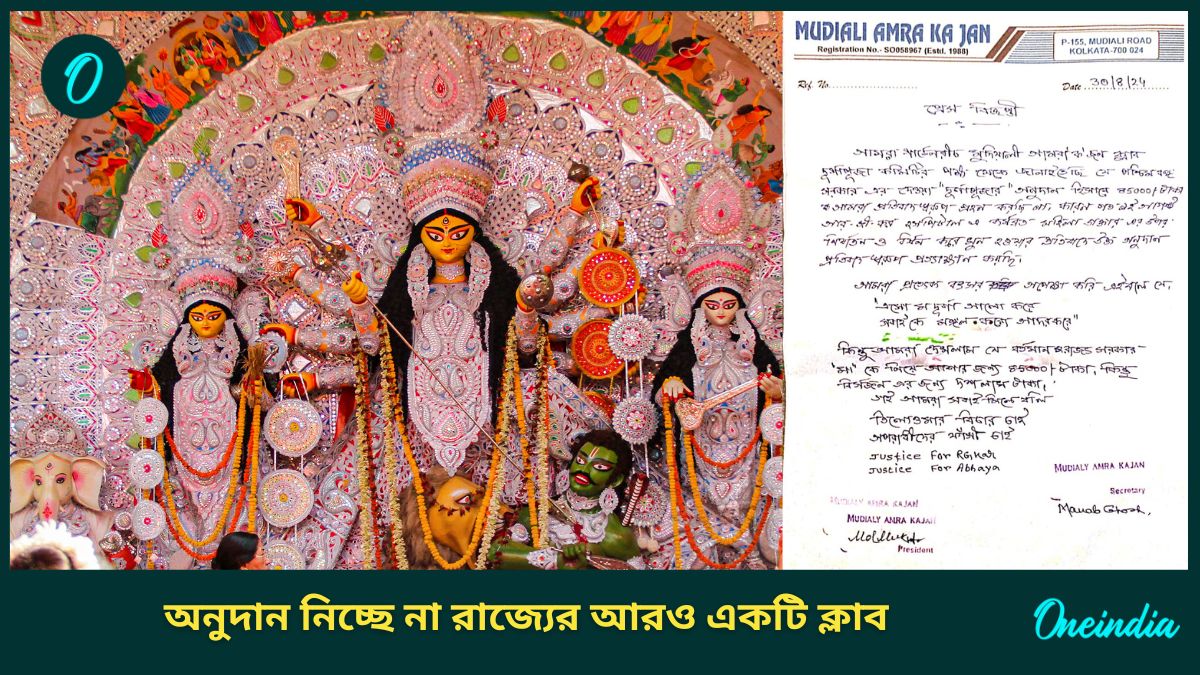 O
MUDIALI AMRA KA JAN
Registration No.- SO058967 (Estd. 1988)
P-155, MUDIALI ROAD
KOLKATA-700 024
Ref. No.
Date 30/8/24
প্রেস বিজ্ঞপ্তী
আমরা গার্ডেনরীচ মুদিয়ালী আমরা ক'জন ক্লাব
দুর্গাপূজা কমিটির পক্ষ থেকে জানাইতেছি যে পশ্চিমবঙ্গ
সরকার এর দেওয়া "দুর্গাপূজার" অনুদান হিসাবে ৮৫০০০/ টাকা
আমরা প্রতিবাদ স্বরূপ গ্রহন করছি না, কারণ গত ৯ই আগষ্ট
আর.জী.কর হসপিটাল এ কর্মরত মহিলা ডাক্তার এর উপর
নির্যাতন ও ধর্ষন করে খুন হওয়ার প্রতিবাদে উক্ত অনুদান
প্রতিবাদ স্বরূপ প্রত্যাক্ষান করছি।
আমরা প্রত্যেক বৎসর অপেক্ষা করি এইবলে যে,
'এসো মা দুর্গা আলো করে
সবাই কে মঙ্গল করো আদর করে"
কিন্তু আমরা দেখলাম যে বর্তমান সরকার
'মা' কে নিয়ে আসার জন্য ৮৫০০০/ টাকা, কিন্তু
বিসর্জন এর জন্য দশ লাখ টাকা,
তাই আমরা সবাই মিলে বলি
তিলোত্তমার বিচার চাই
অপরাধীদের ফাঁসী চাই
Justice For RGKar
Justice For Abhaya
MUDIALY AMRA KAJAN
Secretary
Manob Ghosh,
MUDIALY AMRA KAJAN
MUDIALY AMRA KAJAN
President
অনুদান নিচ্ছে না রাজ্যের আরও একটি ক্লাব
Oneindia